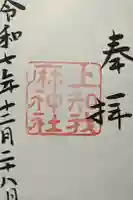 奉拝
上知我
麻神社
令和七年十二月二八日